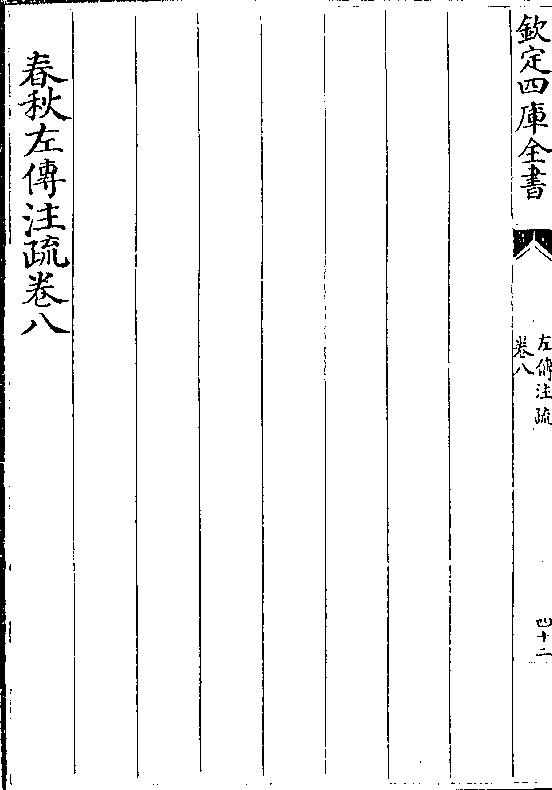 欽定四庫全書
左傳注疏
卷八
四十二
春秋左傳注疏卷八